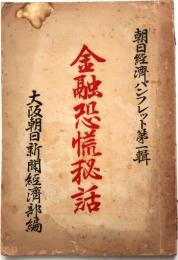 朝日経済パンフレット第一輯
金融恐慌秘話
大阪朝日新聞経済部編